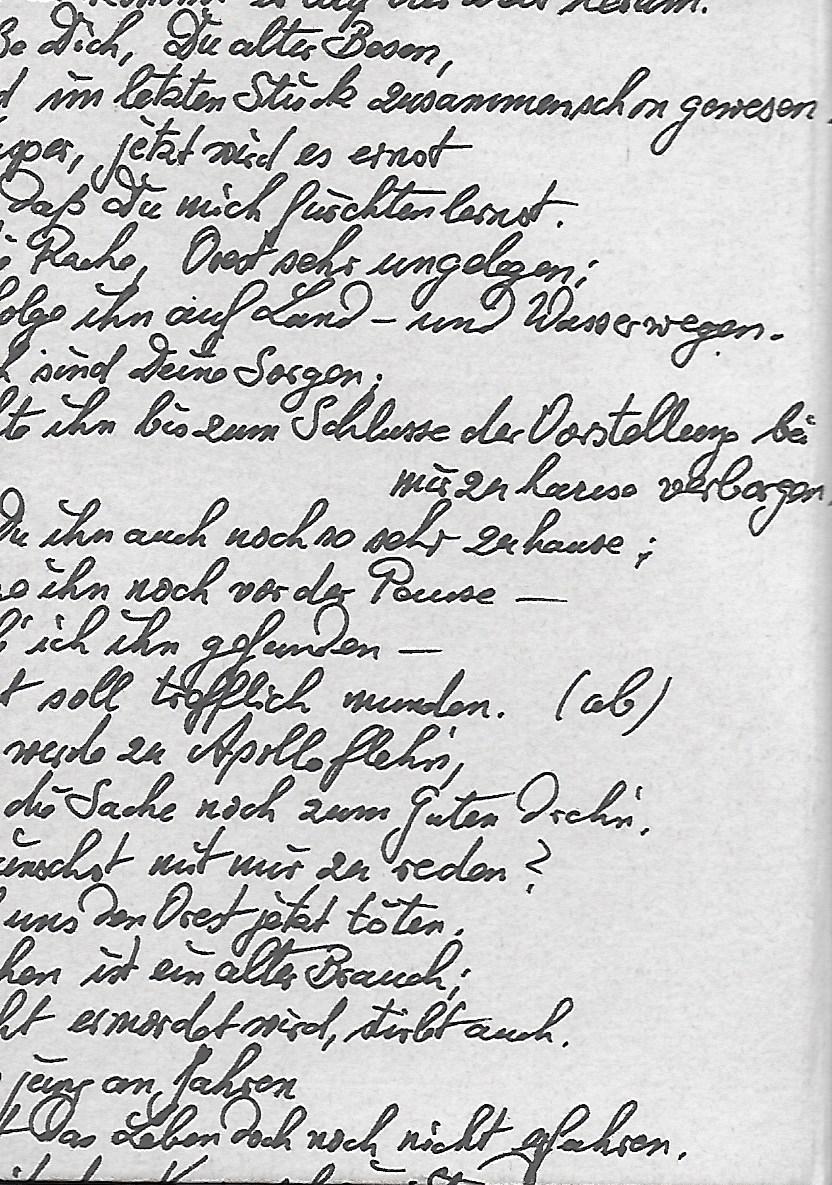 ße Dich, Du alter Besen,
d im letzten Stück zusammen schon gewesen.
sper, jetzt wird es ernst
daß Du mich fürchten lernst.
e Rache, Orest sehr ungelegen;
folge ihn auf Land- und Wasserwegen.
sind Deine Sorgen;
lte ihn bis zum Schlusse der Vorstellung bei
mir zu hause verborgen.
Du ihn auch noch so sehr zu hause;
ihn noch vor der Pause —
b' ich ihn gefunden —
t soll trefflich munden. (ab)
werde zu Apollo flehn,
die Sache noch zum Guten drehn.
ünschst mit mir zu reden?
uns den Orest jetzt töten.
hen ist ein alter Brauch;
ht ermordet wird, stirbt auch.
jung an Jahren
t das Leben doch noch nicht erfahren.